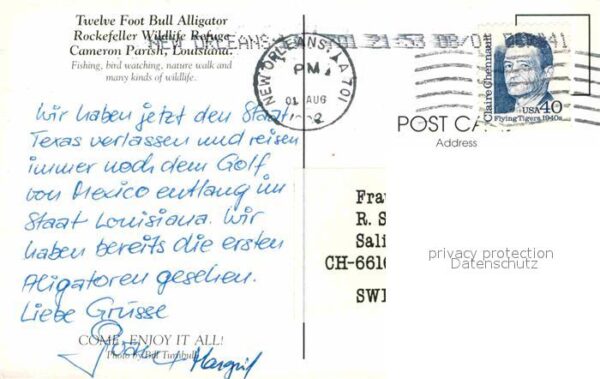 Twelve Foot Bull Alligator
Rockefeller Wildlife Refuge
Cameron Parish, Louisiana.
Fishing, bird watching, nature walk and
many kinds of wildlife.
Wir haben jetzt den Staat
Texas verlassen und reisen
immer noch dem Golf
von Mexico entlang im
Staat Louisiana. Wir
haben bereits die ersten
Aligatoren gesehen.
Liebe Grüsse
Margrit
COME, ENJOY IT ALL!
Photo by Bill Turnbull
NEW ORLEANS 21:53 08/01
NEW ORLEANS, LA 701
PM
01 AUG
Claire Chennault
USA 40
Flying Tigers 1940s
POST CA
Address
Fra
R. S
Sali
CH-6616
SWI
privacy protection
Datenschutz